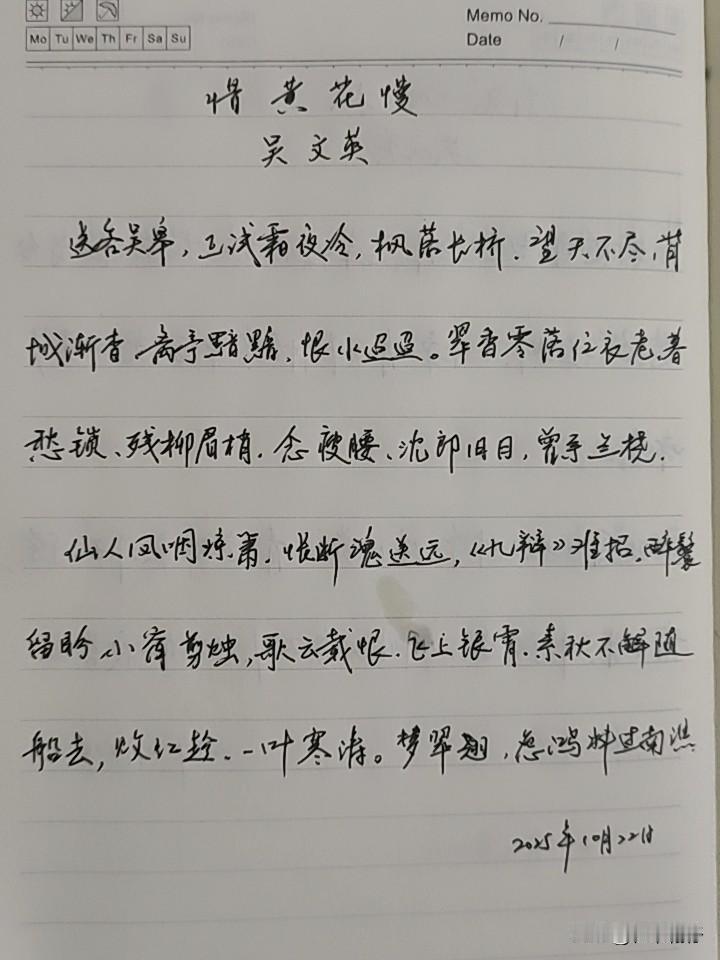 Mo Tu We Th Fr Sa Su
Memo No.
Date / /
惜黄花慢
吴文英
送客吴皋,正试霜夜冷,枫落长桥.望天不尽,背
城渐杳.离亭黯黯、恨水迢迢。翠香零落红衣老,暮
愁锁、残柳眉梢.念瘦腰、沈郎旧日,曾系兰桡.
仙人凤咽琼箫.怅断魂送远,《九辩》难招.醉鬟
留盼、小窗剪烛,歌云载恨.飞上银霄.素秋不解随
船去,败红趁、一叶寒涛。梦翠翘,怨鸿料过南谯
2025年10月22日